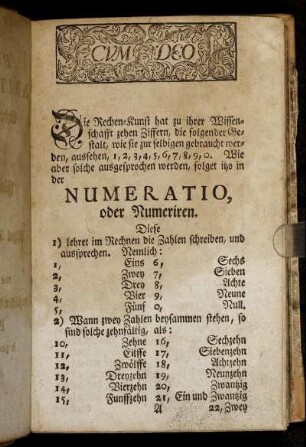 CUM DEO
Die Rechen-Kunst hat zu ihrer Wissen-
schafft zehen Ziffern, die folgender Ge-
stalt, wie sie zur selbigen gebraucht wer-
den, aussehen, 1, 2, 3, 4, 5, 6, 7, 8, 9, 0. Wie
aber solche ausgesprochen werden, folget itzo in
der
NUMERATIO,
oder Numeriren.
Diese
1) lehret im Rechnen die Zahlen schreiben, und
aussprechen. Nemlich:
1, Eins 6, Sechs
2, Zwey 7, Sieben
3, Drey 8, Achte
4, Vier 9, Neune
5, Fünf 0, Null.
2) Wann zwey Zahlen beysammen stehen, so
sind solche zehnfältig, als:
10, Zehne 16, Sechzehn
11, Eilffe 17, Siebenzehn
12, Zwölffe 18, Achtzehn
13, Dreyzehn 19, Neunzehn
14, Vierzehn 20, Zwantzig
15, Funffzehn 21, Ein und Zwantzig
A 22, Zwey